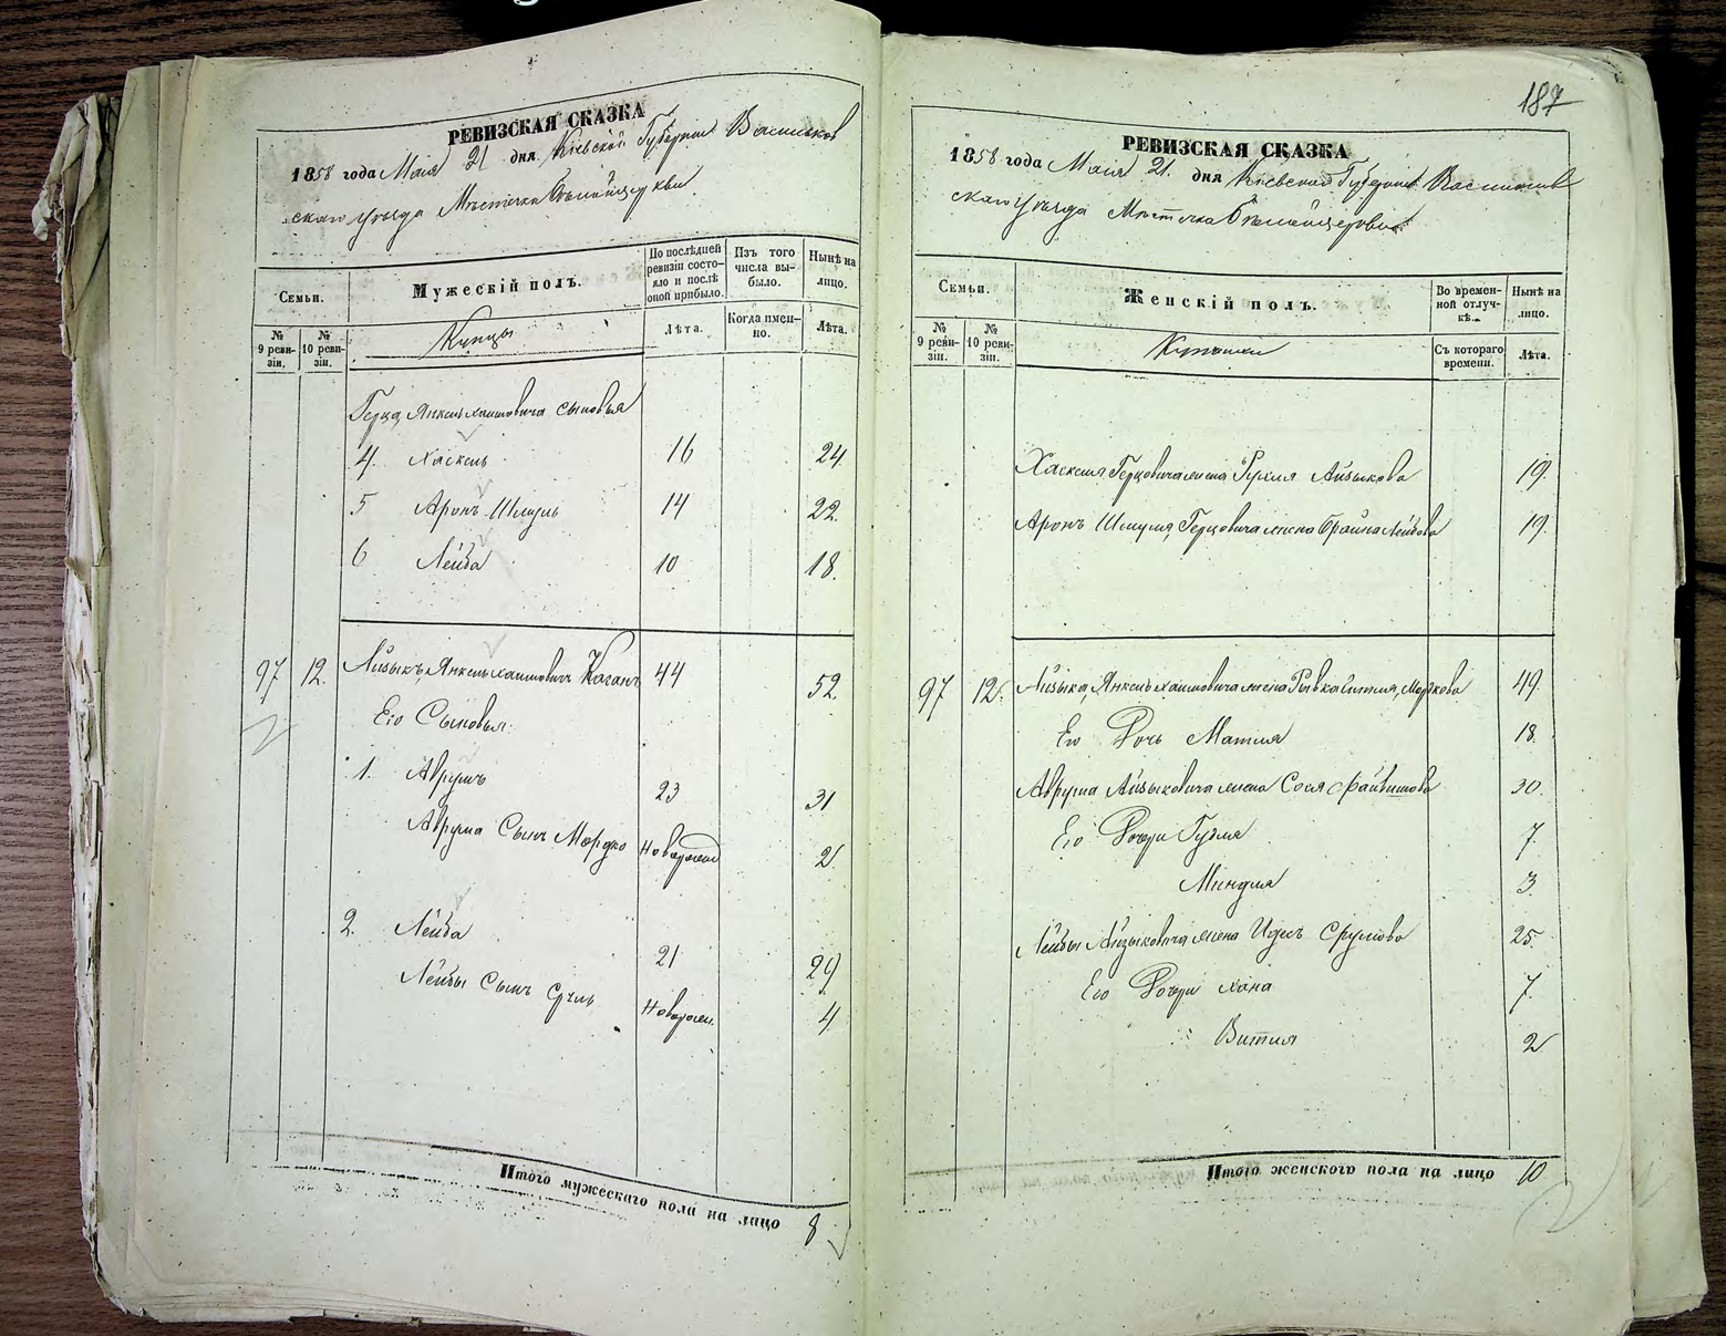 РЕВИЗСКАЯ СКАЗКА
1858 года Маія 21 дня Кіевской Губерніи Васильков
скаго уѣзда Мѣстечка Бѣлойцеркви
Семьи.
Мужескій полъ.
По послѣдней ревизіи состо-
яло и послѣ оной прибыло.
Изъ того числа вы-
было.
Нынѣ на лицо.
№ 9 реви-
зіи.
№ 10 реви-
зіи.
Купцы
Лѣта.
Когда имен-
но.
Лѣта.
Герца Янкельхаимовича сыновья
4. Хаскель 16 24.
5 Аронъ-Шмуль 14 22.
6 Лейба 10 18.
97 12. Айзыкъ Янкельхаимовичъ Каганъ 44 52.
Его Сыновья:
1. Аврумъ 23 31
Аврума Сынъ Мордко Новорожд 2
2. Лейба 21 29
Лейбы Сынъ Сруль Новорожд. 4
Итого мужескаго пола на лицо 8
187
РЕВИЗСКАЯ СКАЗКА
1858 года Маія 21. дня Кіевской Губерніи Васильков
скаго уѣзда Мѣстечка Бѣлойцеркви
Семьи.
Женскій полъ.
Во времен-
ной отлуч-
кѣ.
Нынѣ на лицо.
№ 9 реви-
зіи.
№ 10 реви-
зіи.
Купчихи
Съ котораго времени.
Лѣта.
Хаскеля Герцовича жена Рухля Айзыкова 19.
Аронъ Шмуля Герцовича жена Брайна Лейбова 19.
97 12. Айзыка Янкельхаимовича жена Рывка Гитля Моркова 49.
Его Дочь Матля 18.
Аврума Айзыковича жена Сося Файвишова 30.
Его Дочери Гузля 7.
Миндля 3.
Лейбы Айзыковича жена Идесь Срулова 25.
Его Дочери Хана 7.
Витля 2
Итого женскаго пола на лицо 10